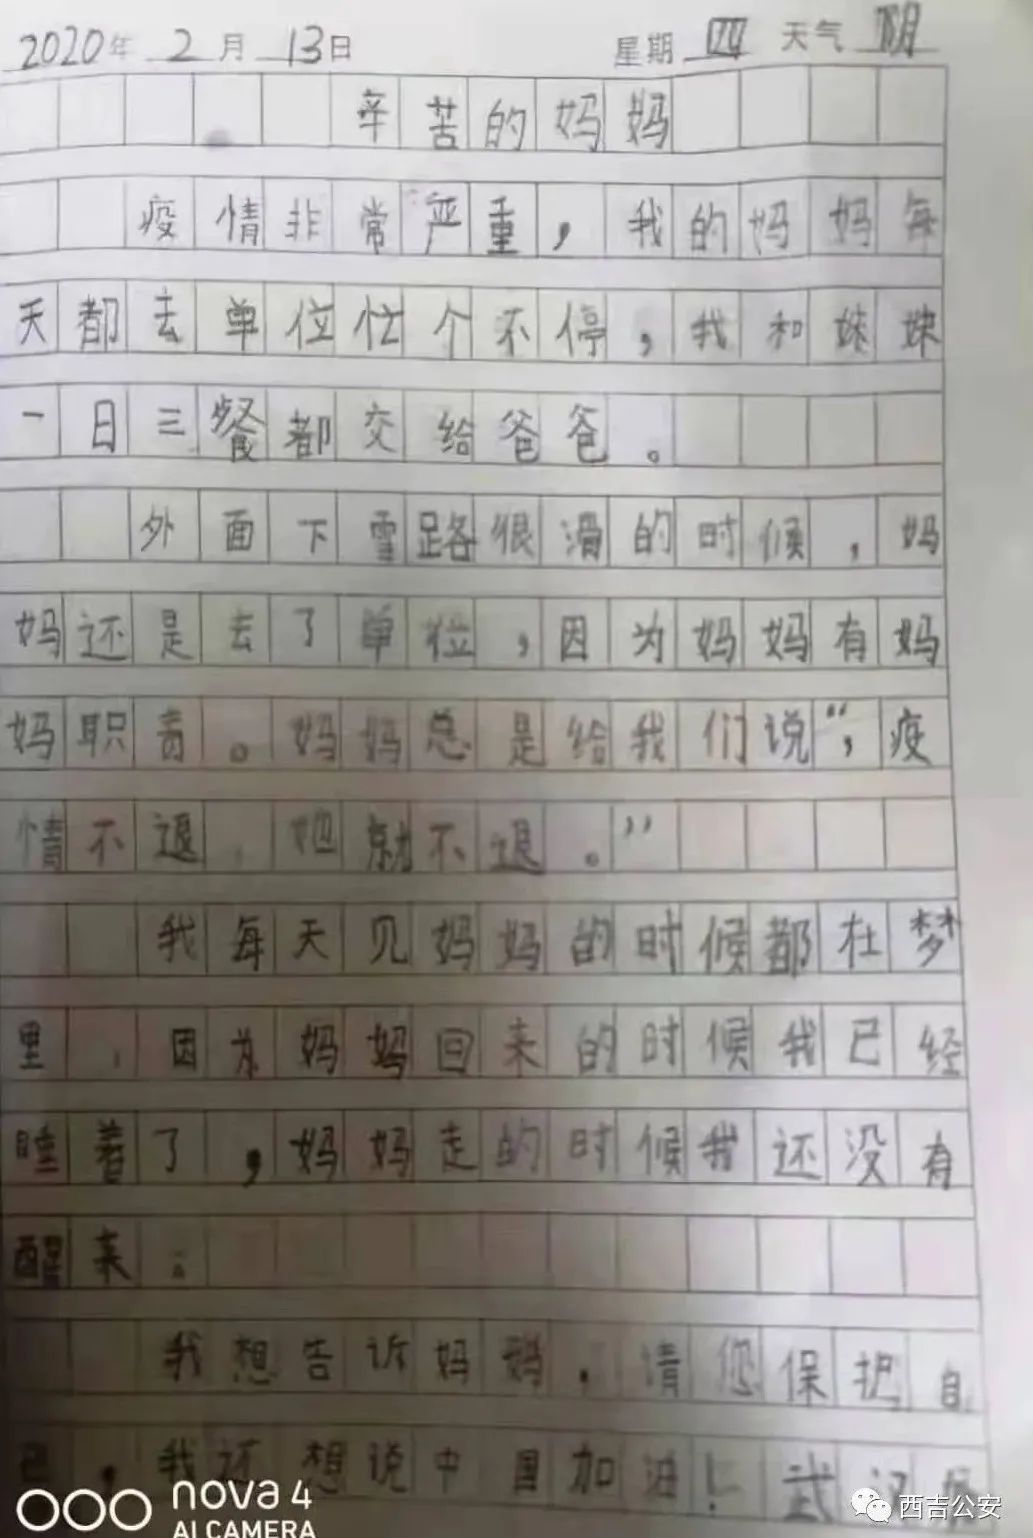 2020年 2月 13日 星期 四 天气 阴
辛苦的妈妈
疫情非常严重，我的妈妈每
天都去单位忙个不停，我和妹妹
一日三餐都交给爸爸。
外面下雪路很滑的时候，妈
妈还是去了单位，因为妈妈有妈
妈职责。妈妈总是给我们说“，疫
情不退，她就不退。”
我每天见妈妈的时候都在梦
里，因为妈妈回来的时候我已经
睡着了，妈妈走的时候我还没有
醒来。
我想告诉妈妈，请您保护自
己，我还想说中国加油！武汉
nova 4
AI CAMERA
西吉公安